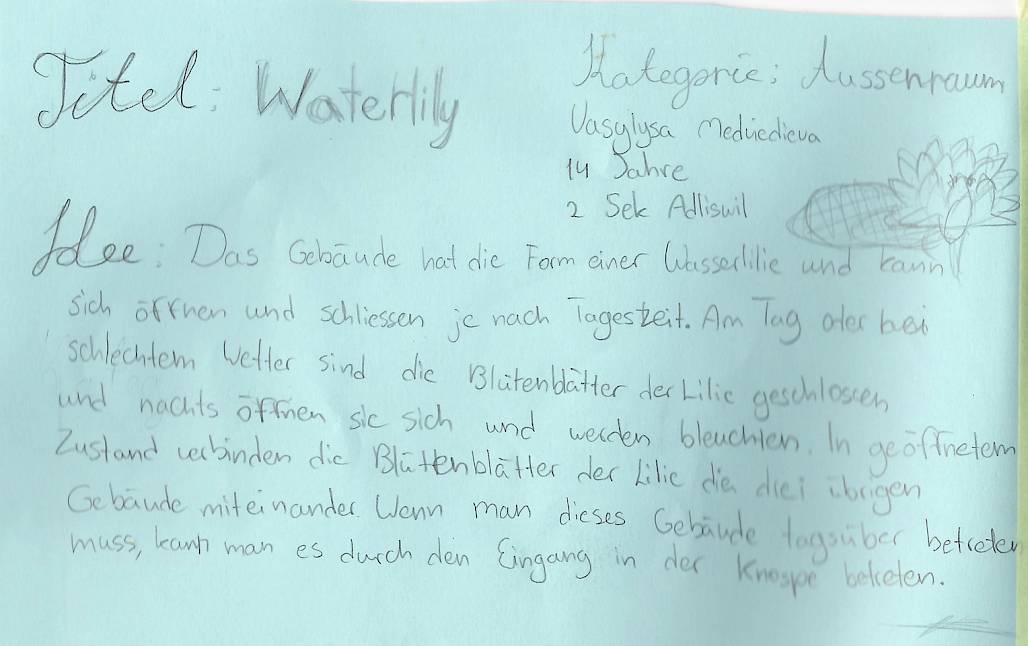 Titel: Waterlily
Kategorie: Aussenraum
Vasylysa Medviedieva
14 Jahre
2 Sek Adliswil
Idee: Das Gebäude hat die Form einer Wasserlilie und kann
sich öffnen und schliessen je nach Tageszeit. Am Tag oder bei
schlechtem Wetter sind die Blütenblätter der Lilie geschlossen
und nachts öffnen sie sich und werden bleuchten. In geöffnetem
Zustand verbinden die Blüttenblätter der Lilie die drei übrigen
Gebäude miteinander. Wenn man dieses Gebäude tagsüber betreten
muss, kann man es durch den Eingang in der Knospe betreten.